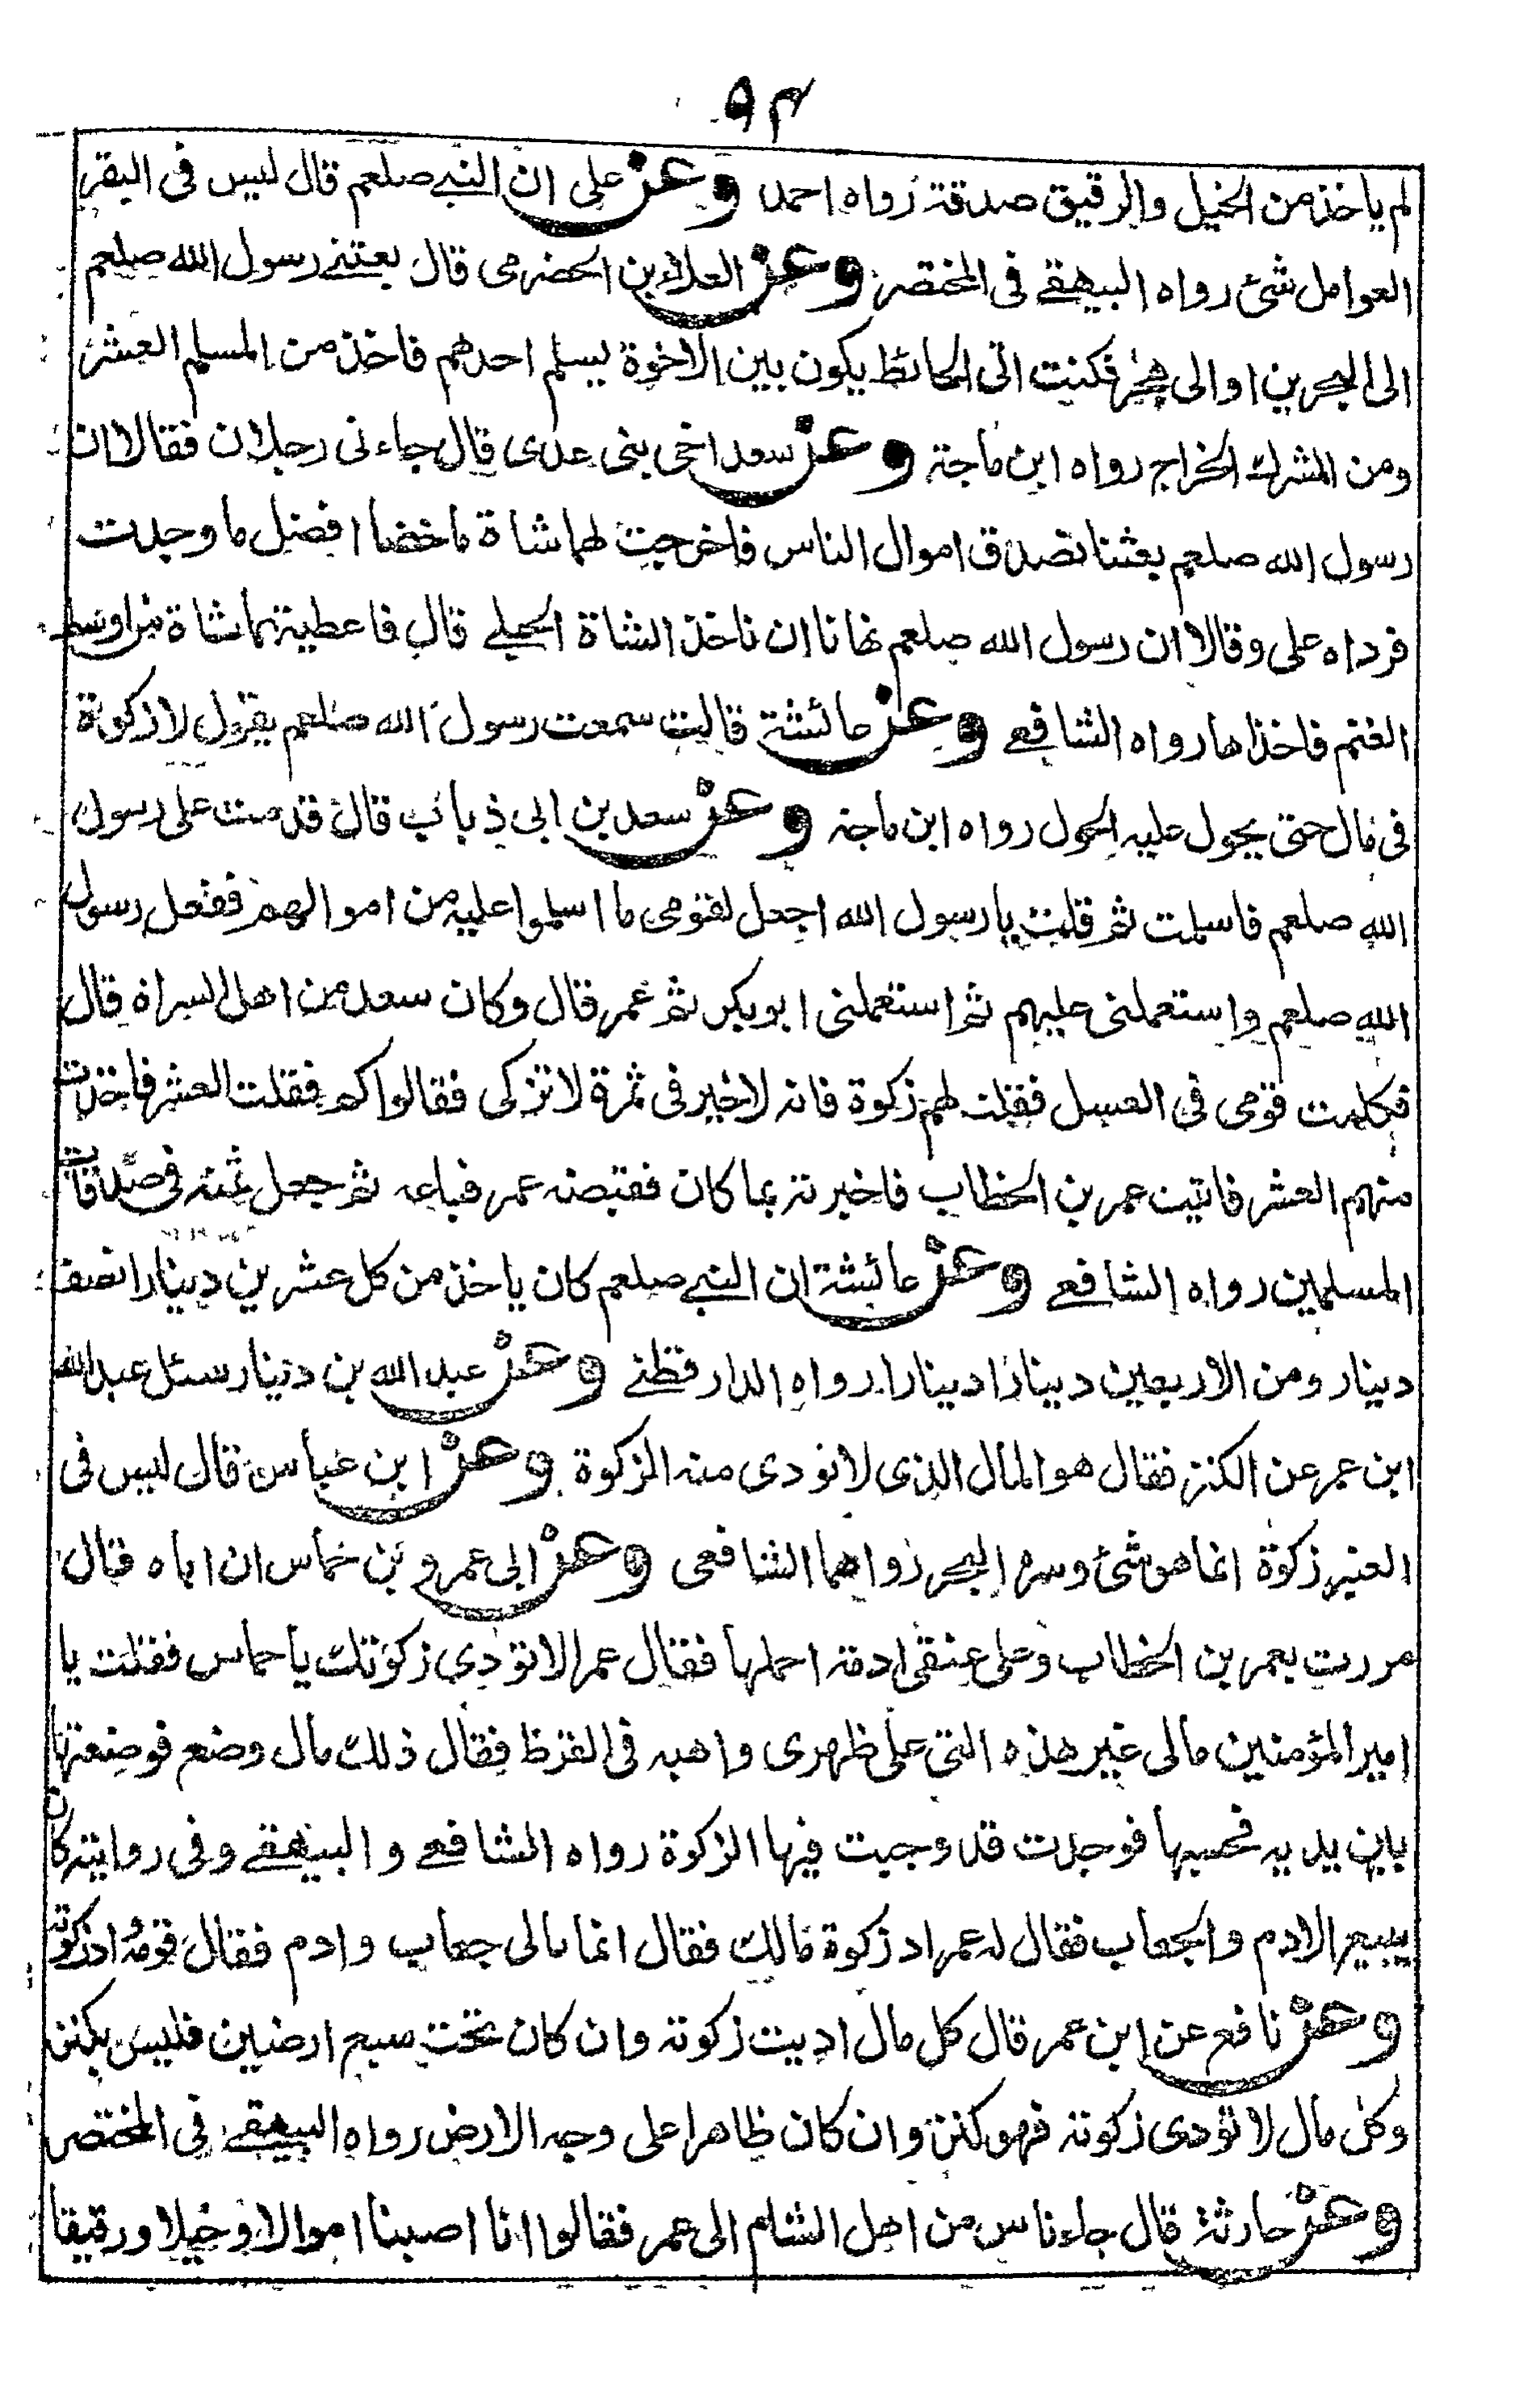 ٩٣
لم ياخذ من الخيل والرقيق صدقة رواه احمد وعن على ان النبي صلعم قال ليس فى البقر
العوامل شئ رواه البيهقي فى المختصر وعن العلاء بن الحضرمى قال بعثني رسول الله صلعم
الى البحرين او الى هجر فكنت اتى الحائط يكون بين الاخوة يسلم احدهم فاخذ من المسلم العشر
ومن المشرك الخراج رواه ابن ماجة وعن سعد اخى بنى عدى قال جاءنى رجلان فقالا ان
رسول الله صلعم بعثنا نصدق اموال الناس فاخرجت لهما شاة ماخضا افضل ما وجدت
فرداه على وقالا ان رسول الله صلعم نهانا ان ناخذ الشاة الحبلے قال فاعطيتهما شاة من اوسط
الغنم فاخذاها رواه الشافعے وعن عائشة قالت سمعت رسول الله صلعم يقول لا زكوة
فى مال حتى يحول عليه الحول رواه ابن ماجة وعن سعد بن ابى ذباب قال قدمت على رسول
الله صلعم فاسلمت ثم قلت يا رسول الله اجعل لقومى ما اسلموا عليه من اموالهم ففعل رسول
الله صلعم واستعملنى عليهم ثم استعملنى ابو بكر ثم عمر قال وكان سعد من اهل السراة قال
فكلمت قومى فى العسل فقلت لهم زكوة فانه لا خير فى ثمرة لا تزكى فقالوا كم فقلت العشر فاخذت
منهم العشر فاتيت عمر بن الخطاب فاخبرته بما كان فقبضه عمر فباعه ثم جعل ثمنه فى صدقات
المسلمين رواه الشافعے وعن عائشة ان النبي صلعم كان ياخذ من كل عشرين دينارا نصف
دينار ومن الاربعين دينارا دينارا رواه الدارقطنے وعن عبد الله بن دينار سئل عبد الله
ابن عمر عن الكنز فقال هو المال الذى لا تودى منه الزكوة وعن ابن عباس قال ليس فى
العنبر زكوة انما هو شئ دسره البحر رواهما الشافعى وعن ابى عمرو بن خماس ان اباه قال
مررت بعمر بن الخطاب وعلى عنقى ادمة احملها فقال عمر الا تؤدى زكوتك يا حماس فقلت يا
امير المؤمنين مالى غير هذه التى على ظهرى واهبه فى القرظ فقال ذلك مال وضع فوضعتها
بين يديه فحسبها فوجدت قد وجبت فيها الزكوة رواه الشافعے والبيهقے وفى رواية كان
يبيع الادم والجعاب فقال له عمر اد زكوة مالك فقال انما مالى جعاب وادم فقال قومه اد زكوته
وعن نافع عن ابن عمر قال كل مال اديت زكوته وان كان تحت سبع ارضين فليس بكنز
وكل مال لا تؤدى زكوته فهو كنز وان كان ظاهرا على وجه الارض رواه البيهقے فى المختصر
وعن حارثة قال جاء ناس من اهل الشام الى عمر فقالوا انا اصبنا اموالا وخيلا ورقيقا